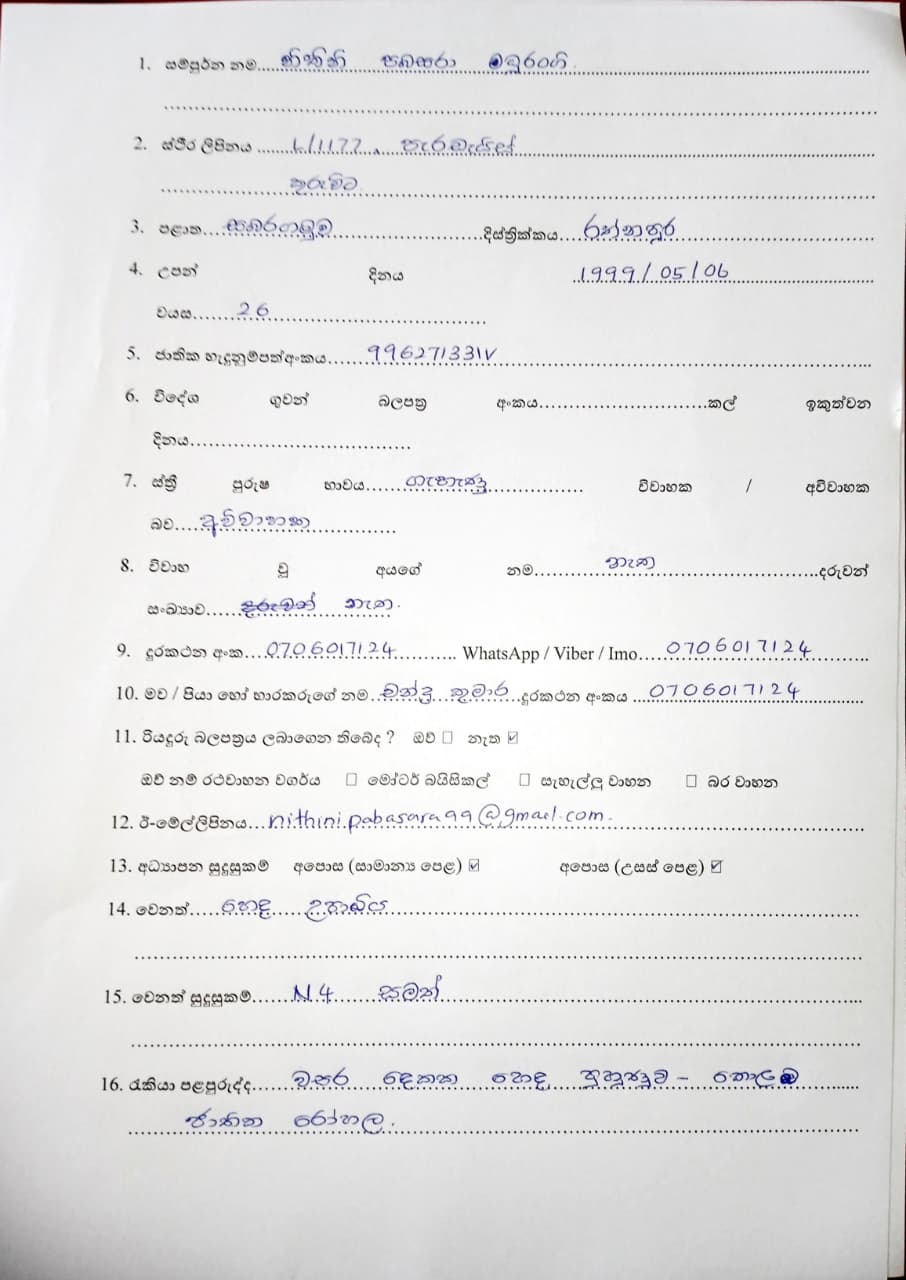 1. සම්පූර්න නම.... නිතිනි පබසරා මධුරංගි.
2. ස්ථිර ලිපිනය ...... L/1177, පැරඩැයිස්
කුරුවිට
3. පළාත.... සබරගමුව ....දිස්ත්‍රික්කය.... රත්නපුර
4. උපන් දිනය 1999/05/06
වයස...... 26
5. ජාතික හැදුනුම්පත්අංකය...... 996271331V
6. විදේශ ගුවන් බලපත්‍ර අංකය..............................කල් ඉකුත්වන
දිනය.......................................
7. ස්ත්‍රී පුරුෂ භාවය...... ගැහැණු ...... විවාහක / අවිවාහක
බව.... අවිවාහක
8. විවාහ වූ අයගේ නම.... නැත ....දරුවන්
සංඛ්‍යාව...... දරුවන් නැත.
9. දුරකථන අංක.... 0706017124 .... WhatsApp / Viber / Imo.... 0706017124
10. මව / පියා හෝ භාරකරුගේ නම.. චන්ද්‍ර කුමාර ..දුරකථන අංකය ... 0706017124
11. රියදුරු බලපත්‍රය ලබාගෙන තිබේද ? ඔව් ☐ නැත ☑
ඔව් නම් රථවාහන වර්ගය ☐ මෝටර් බයිසිකල් ☐ සැහැල්ලු වාහන ☐ බර වාහන
12. ඊ-මේල්ලිපිනය.... nithini.pabasara99@gmael.com.
13. අධ්‍යාපන සුදුසුකම් අපොස (සාමාන්‍ය පෙළ) ☑ අපොස (උසස් පෙළ) ☑
14. වෙනත්...... හෙද උපාධිය
15. වෙනත් සුදුසුකම්........ N4 සමත්
16. රැකියා පළපුරුද්ද...... වසර දෙකක හෙද පුහුණුව - කොළඹ
ජාතික රෝහල.